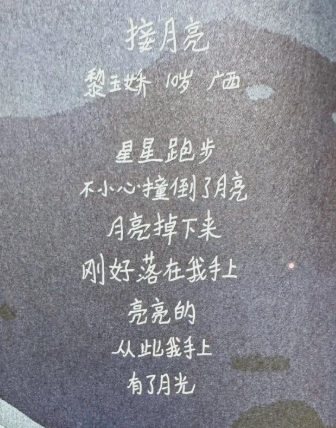 接月亮
黎玉娇 10岁 广西
星星跑步
不小心撞倒了月亮
月亮掉下来
刚好落在我手上
亮亮的
从此我手上
有了月光